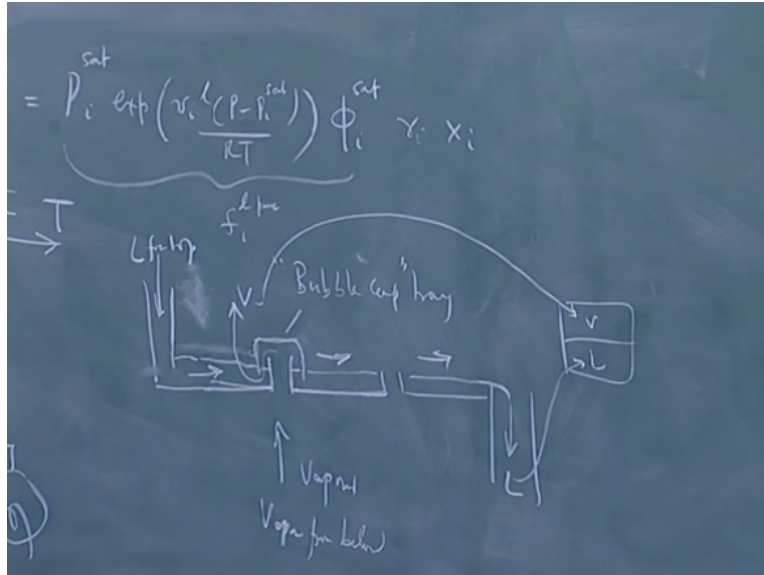 = P_i^sat exp(v_i^l (P-P_i^sat) / RT) φ_i^sat γ_i x_i
= T
f_i^l pure
L from top
V
"Bubble cap" tray
V
L
L
Vapour
Vapor from below